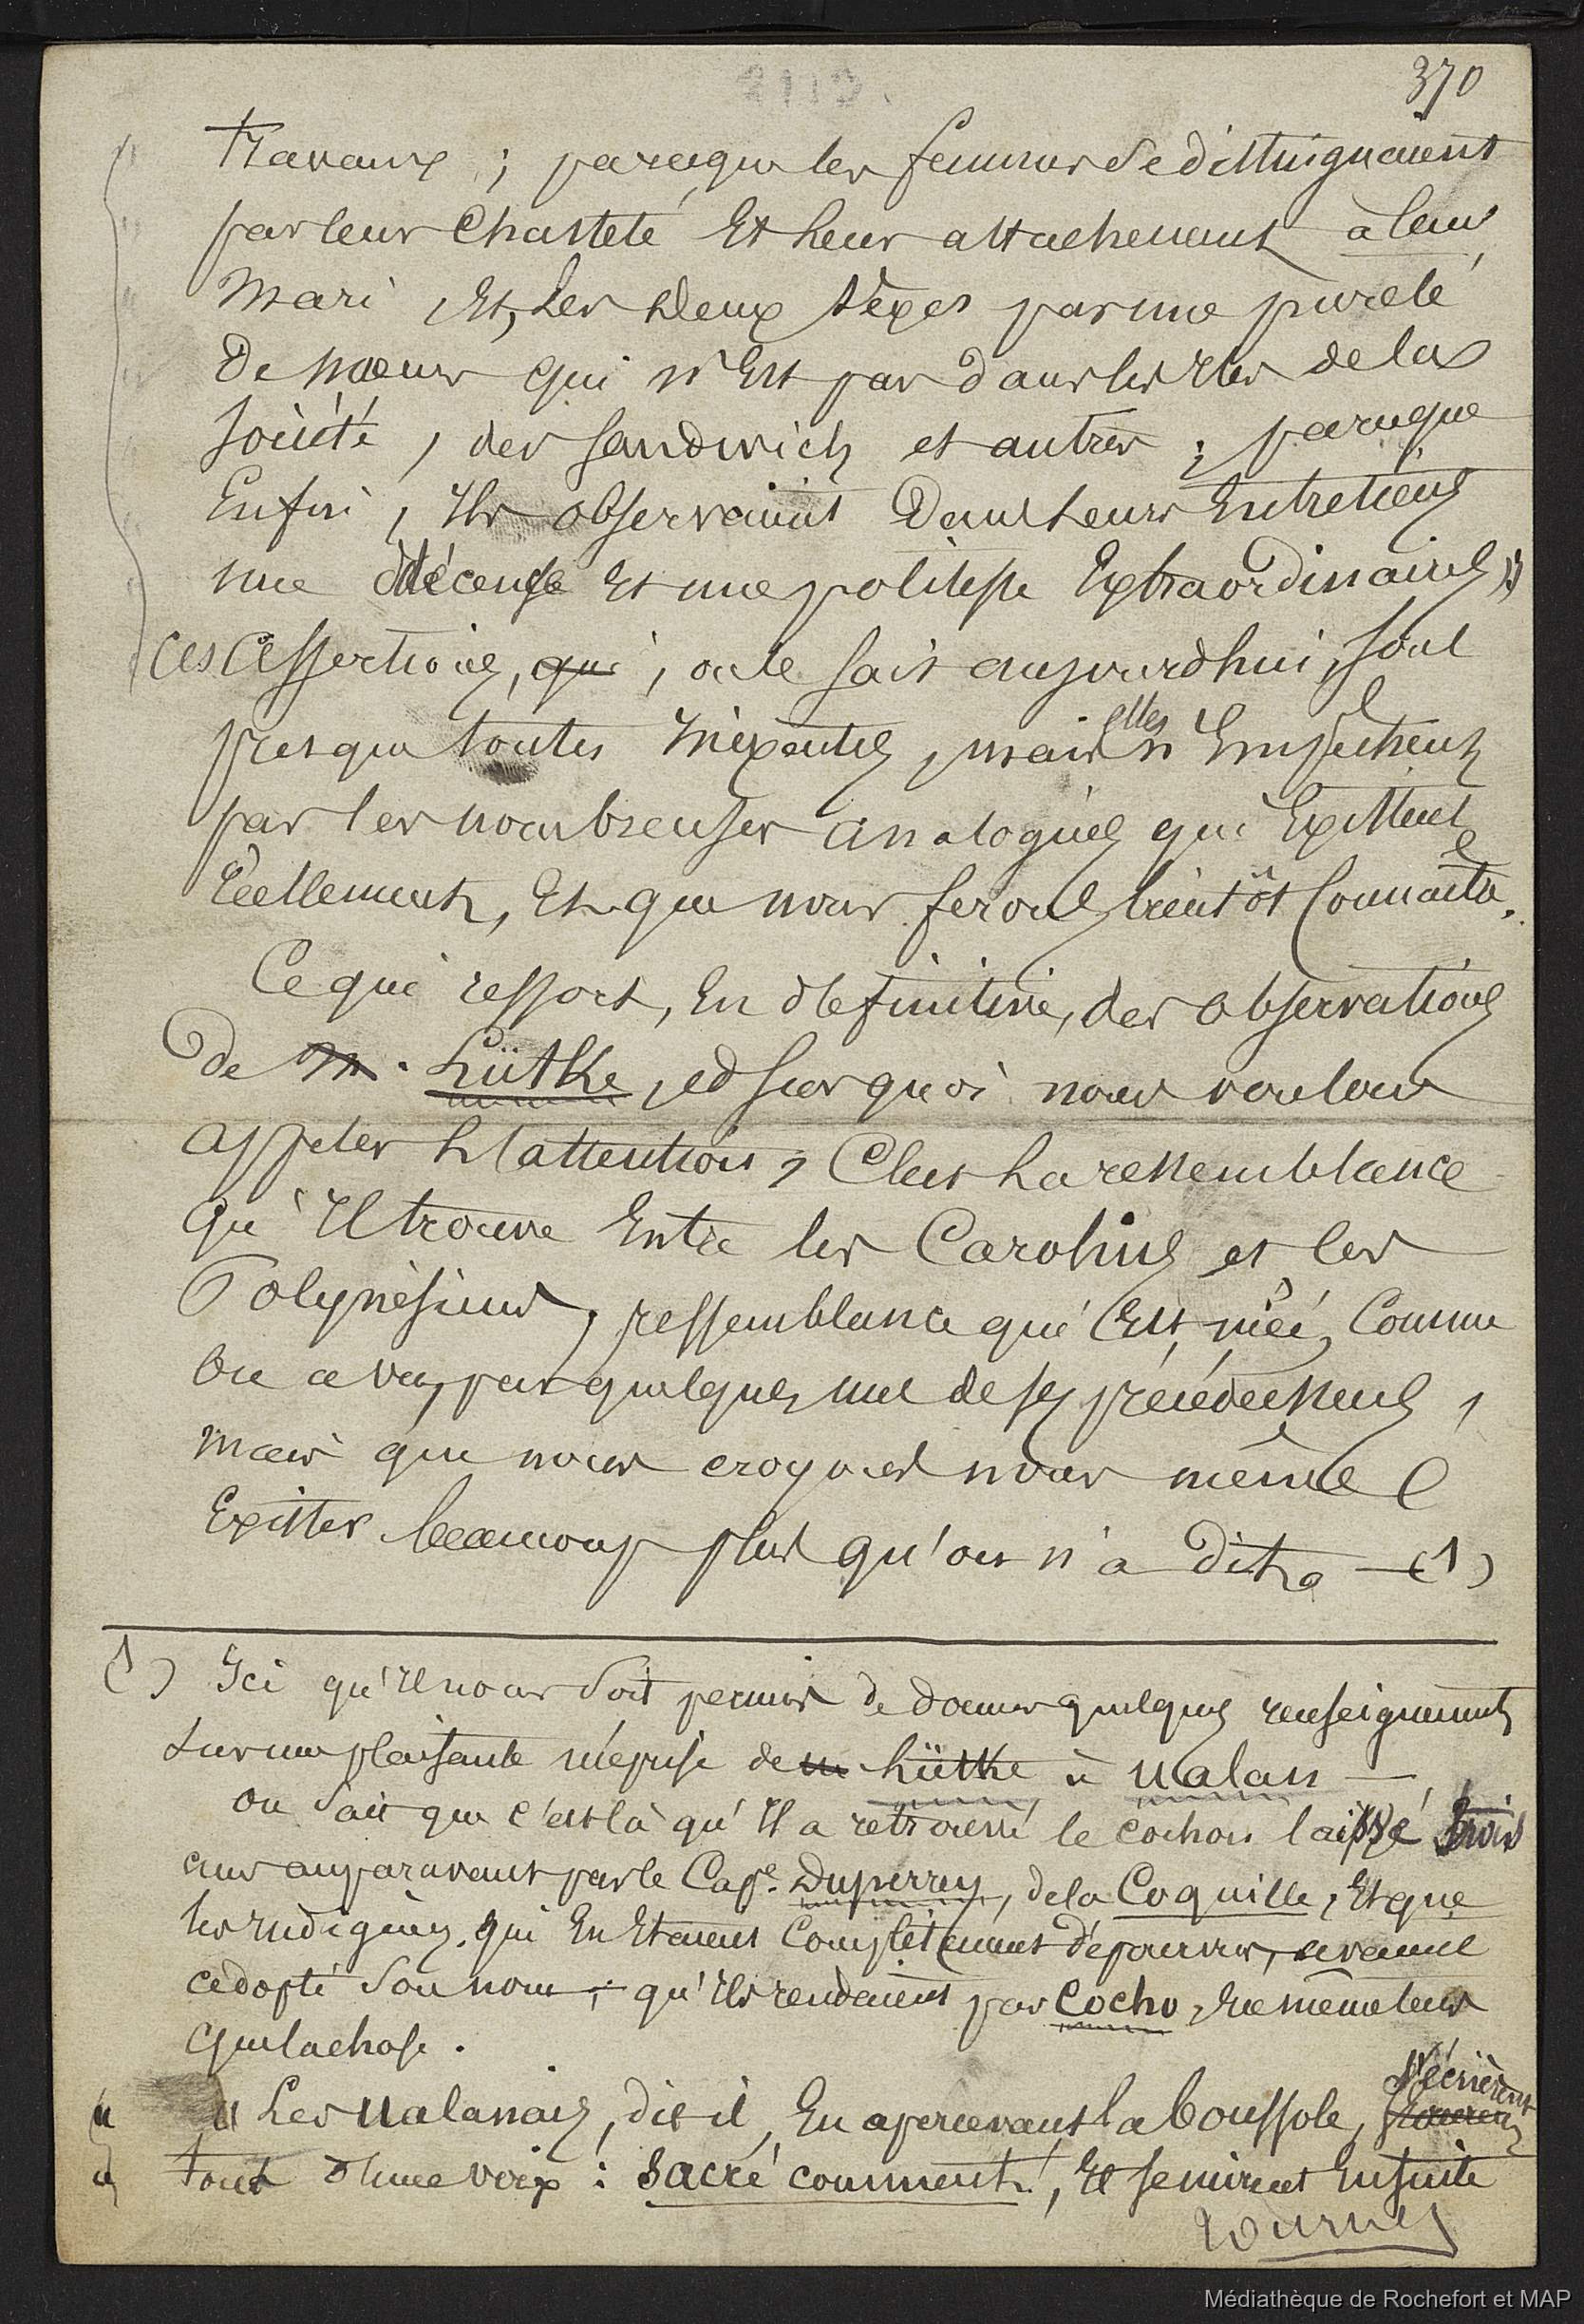 370
travaux ; parceque les femmes se distinguaient
par leur chasteté et leur attachement à leur
mari et, les deux sèxes par une pureté
de mœurs qui n'est pas dans les iles de la
société, des sandwich et autres ; parceque
Enfin, Ils observaient dans leurs Entretiens
une décence et une politesse Extraordinaires »
ces assertions, qui, on le sait aujourd'hui, sont
presque toutes inéxactes, mais elles n'Empêchent
pas les nombreuses analogies qui Existent
réellement, Et que nous ferons bientôt Connaitre.
Ce qui ressort, En définitive, des observations
de M. Lütke, et sur quoi nous voulons
appeler l'attention, C'est la ressemblance
qu'Il trouve Entre les Carolins et les
Polynésiens, ressemblance qui Est niée, Comme
on a vu, par quelques uns de ses prédécesseurs,
mais que nous croyons nous même
Exister beaucoup plus qu'on n'a dit. — (1)
(1) Ici qu'Il nous soit permis de donner quelques renseignements
sur une plaisante méprise de M Lütke à Ualan —
on sait que c'est là qu'Il a retrouvé le cochon laissé trois
ans auparavant par le Cape. Duperrey, de la Coquille, Et que
les indigènes, qui En Etaient Complètement dépourvus, avaient
adopté son nom, qu'Ils rendaient par Cocho, En même tems
que la chose.
« Les Ualanais, dit-il, En apercevant la boussole, s'écrièrent
tous d'une voix : Sacré comment !, Et se mirent Ensuite
tourner
Médiathèque de Rochefort et MAP